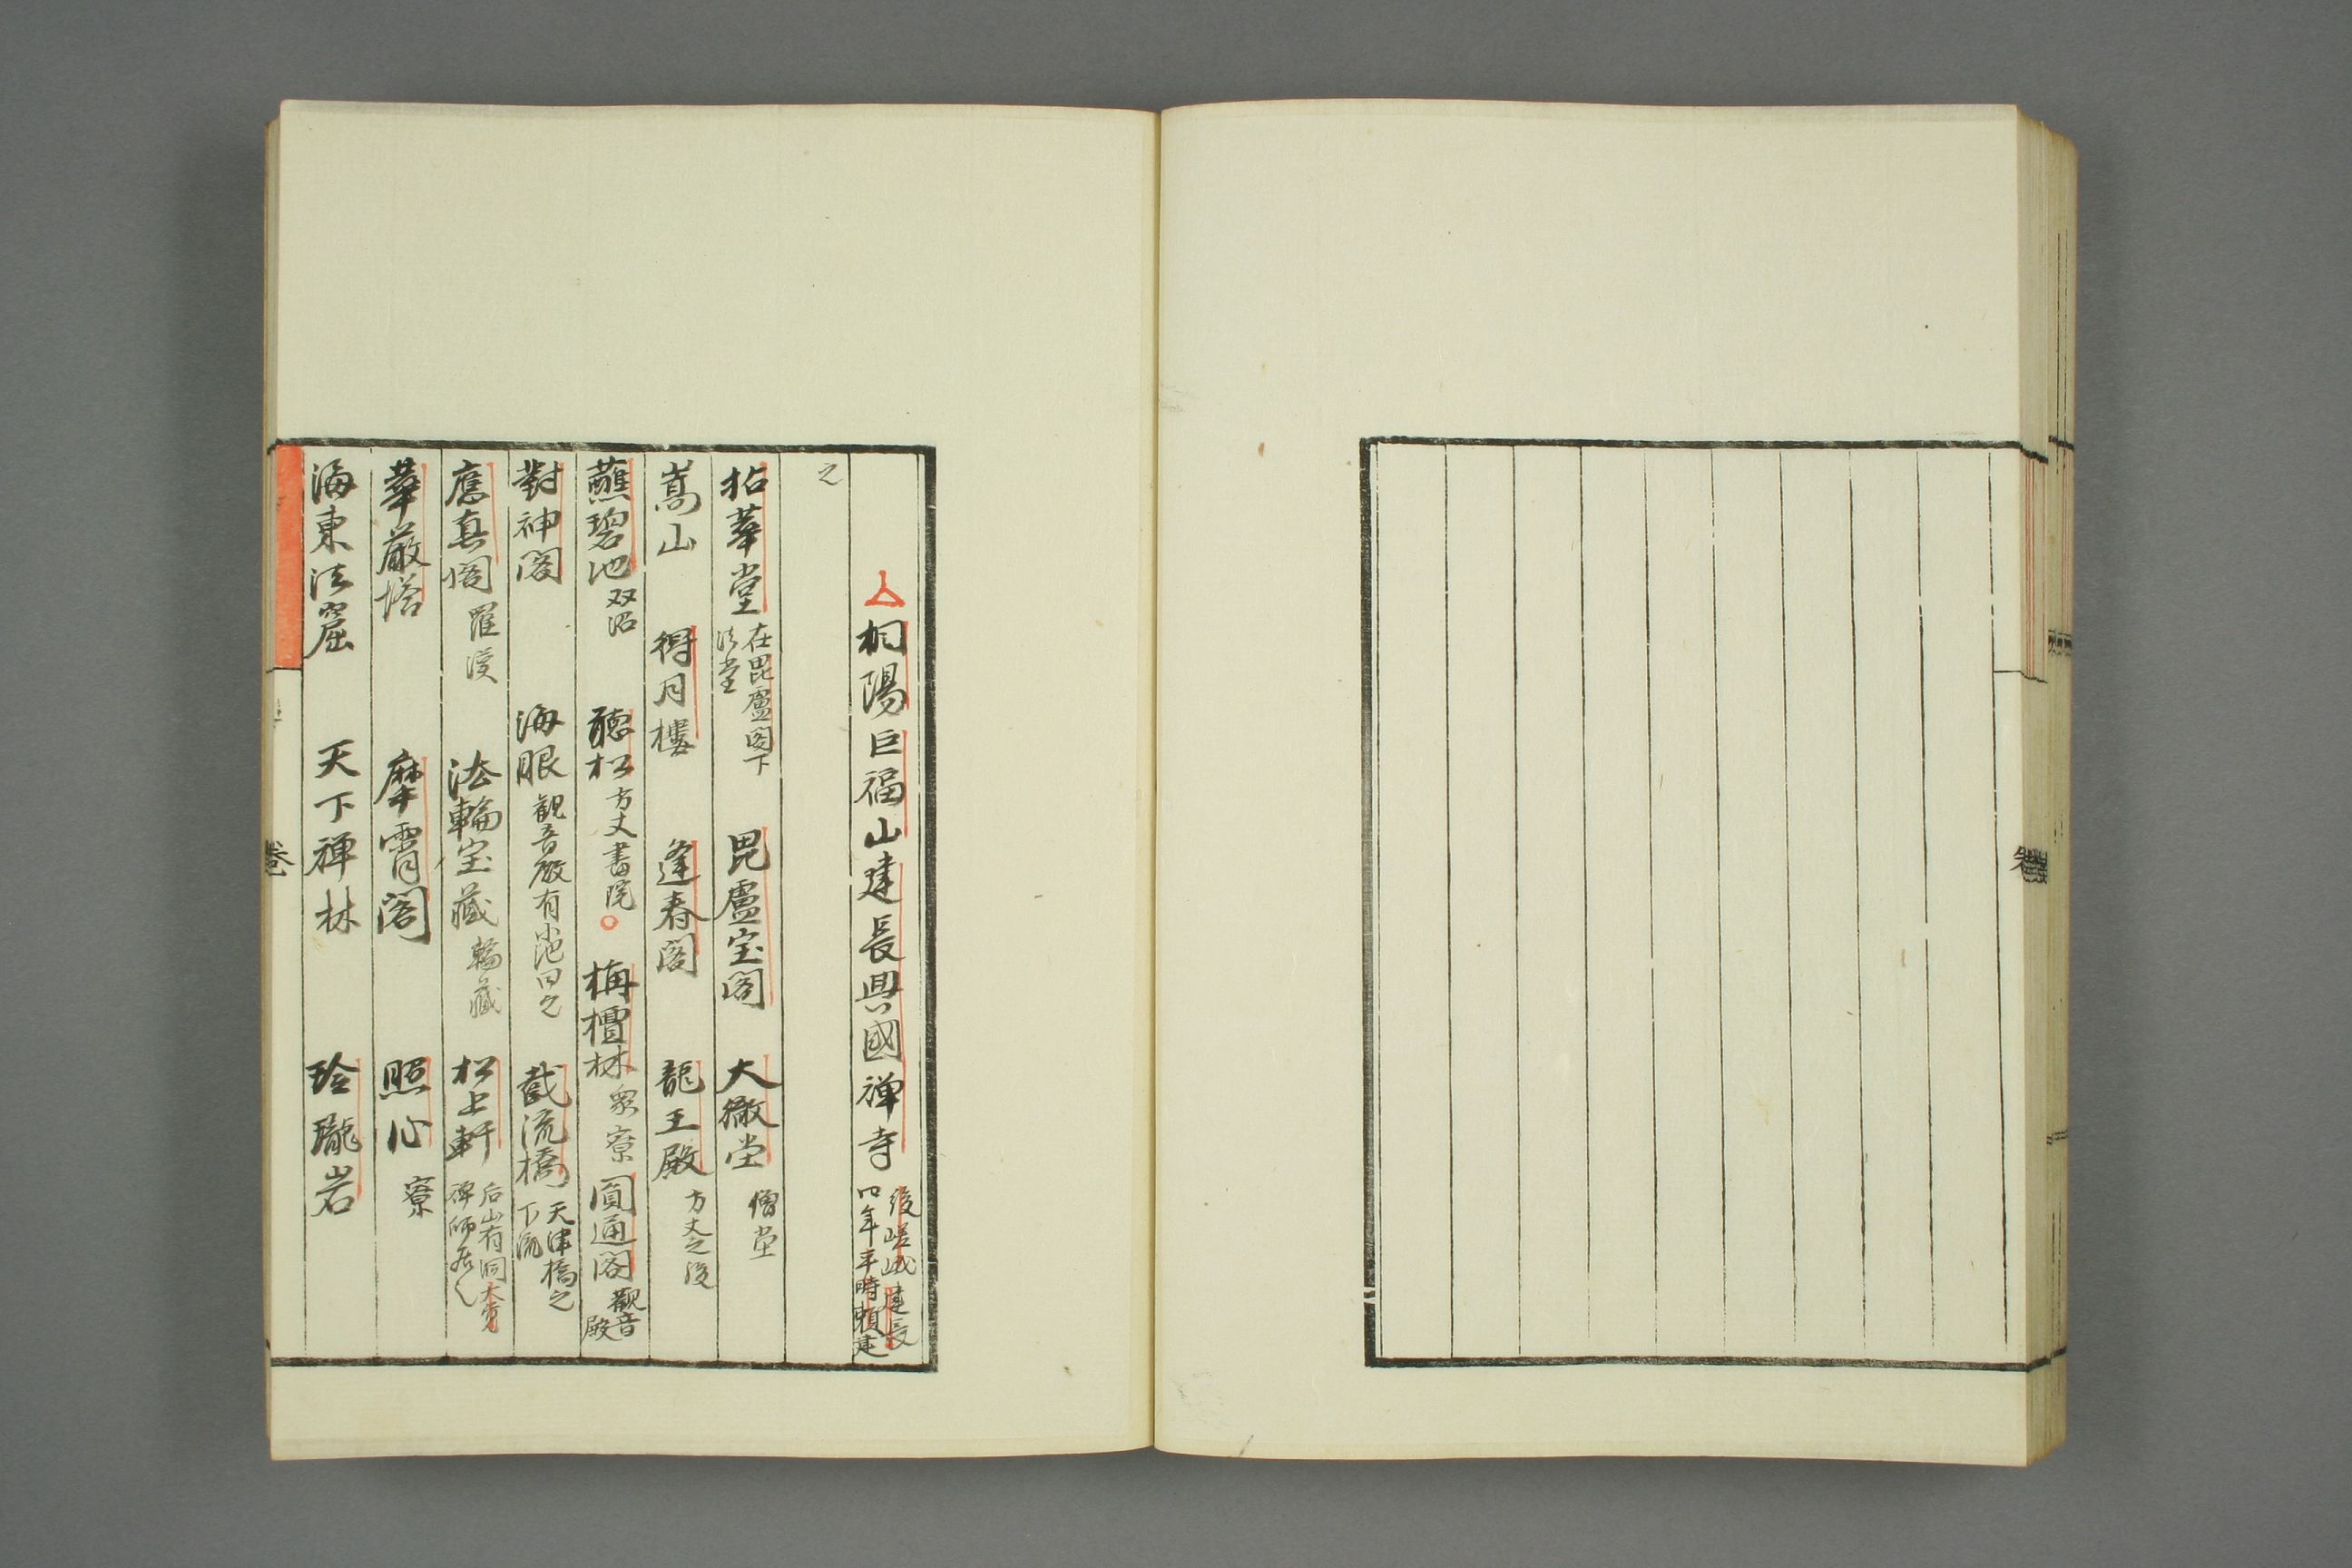 桐陽巨福山建長興國禅寺 後嵯峨建長四年平時頼建
之
拈華堂 在毘盧閣下法堂 毘盧宝閣 大徹堂 僧堂
嵩山 得月樓 逢春閣 龍王殿 方丈之後
蘸碧池 双沼 聴松 方丈書院 栴檀林 衆寮 圓通閣 観音殿
對神閣 海眼 観音殿有小池曰之 截流橋 天津橋之下流
應真閣 羅漢 法輪宝藏 輪藏 松上軒 后山有洞大覚禅師居之
華厳塔 摩霄閣 照心 寮
海東法窟 天下禅林 玲瓏岩
卷